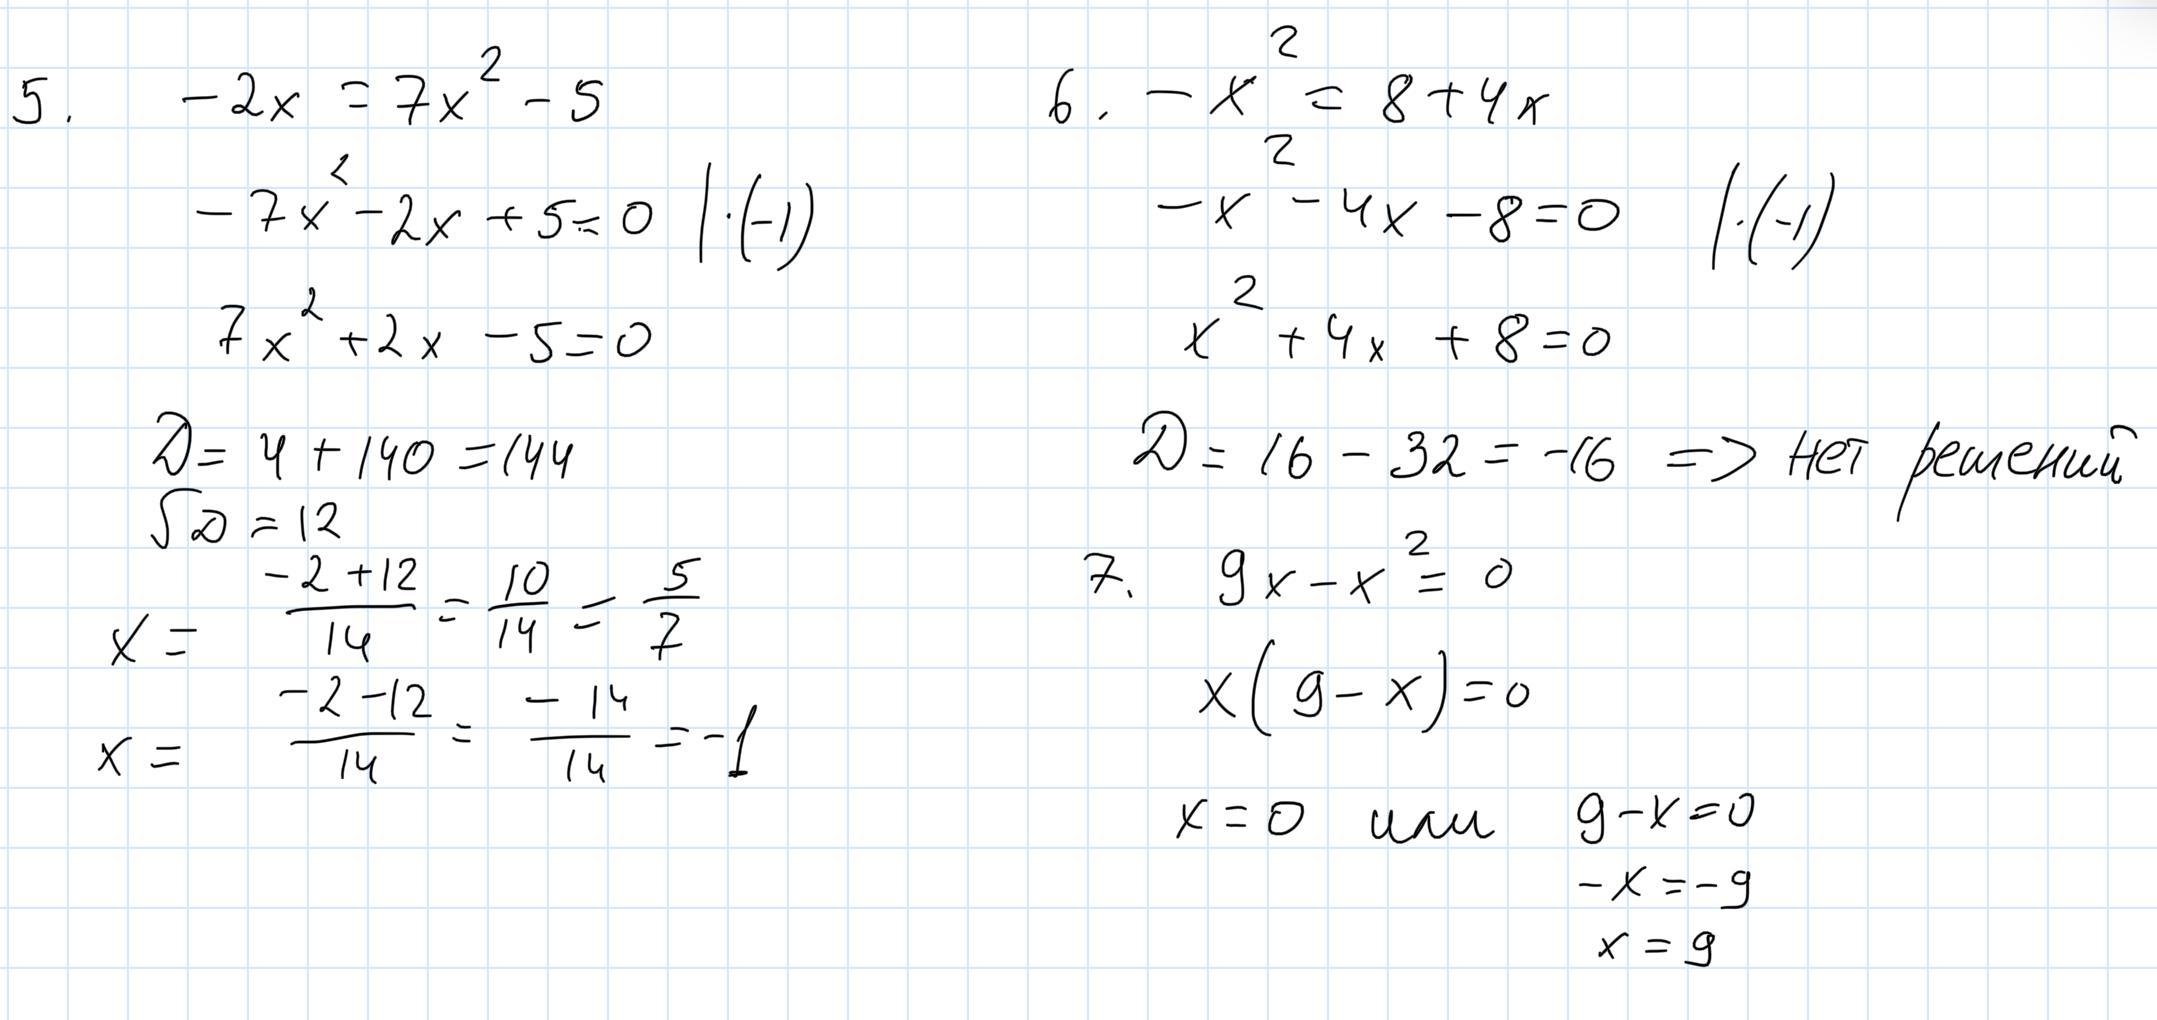 5. -2x = 7x² - 5
-7x² - 2x + 5 = 0 | ·(-1)
7x² + 2x - 5 = 0
D = 4 + 140 = 144
√D = 12
x = (-2 + 12)/14 = 10/14 = 5/7
x = (-2 - 12)/14 = -14/14 = -1
6. -x² = 8 + 4x
-x² - 4x - 8 = 0 | ·(-1)
x² + 4x + 8 = 0
D = 16 - 32 = -16 => нет решений
7. 9x - x² = 0
x(9 - x) = 0
x = 0 или 9 - x = 0
-x = -9
x = 9